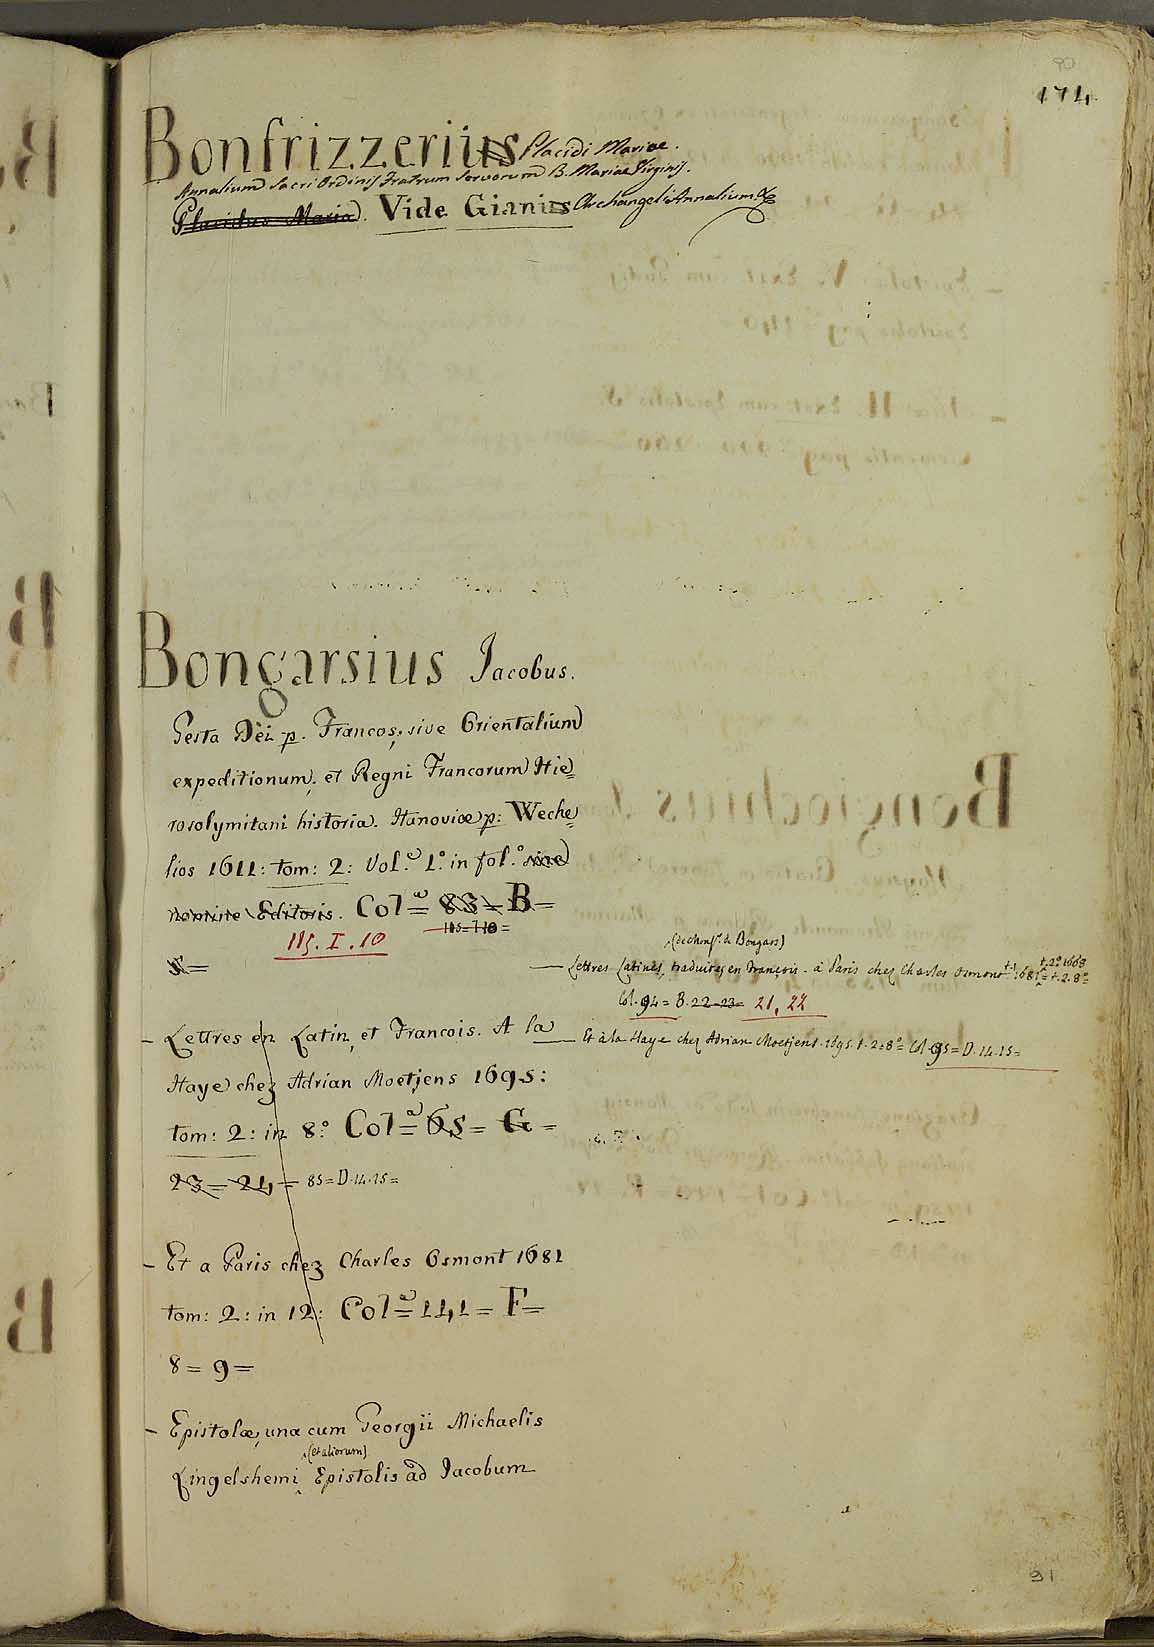 90
174.
Bonfrizzerius Placidi Mariae.
Annalium Sacri Ordinis Fratrum Servorum B. Mariae Virginis.
Placidus Maria. Vide Gianius Archangeli Annalium &
Bongarsius Jacobus.
Gesta Dei p. Francos, sive Orientalium
expeditionum, et Regni Francorum Hie=
rosolymitani historia. Hanoviæ p: Weche=
lios 1611: tom: 2: Vol.e 1.° in fol.° sine
nomine Editoris. Cola= 83= B=
115=I10=
115. I. 10
Lettres Latines, traduites en François. à Paris chez Charles Osmont t.1 1681= t.2. 8°=
(de Monsr. de Bongars)
t.2° 1668
Col. 94= B. 22-23= 21, 22
- Lettres en Latin, et Francois. A la
Et à la Haye chez Adrian Moetjens. 1695. t. 2. 8°= Col 95= D. 14. 15=
Haye chez Adrian Moetjens 1695:
tom: 2: in 8° Cola= 65= G=
23= 24= 85= D. 14. 15=
- Et a Paris chez Charles Osmont 1681
tom: 2: in 12: Cola= 141= F=
8= 9=
- Epistolæ, una cum Georgii Michaelis
(et aliorum)
Lingelshemi Epistolis ad Jacobum
91